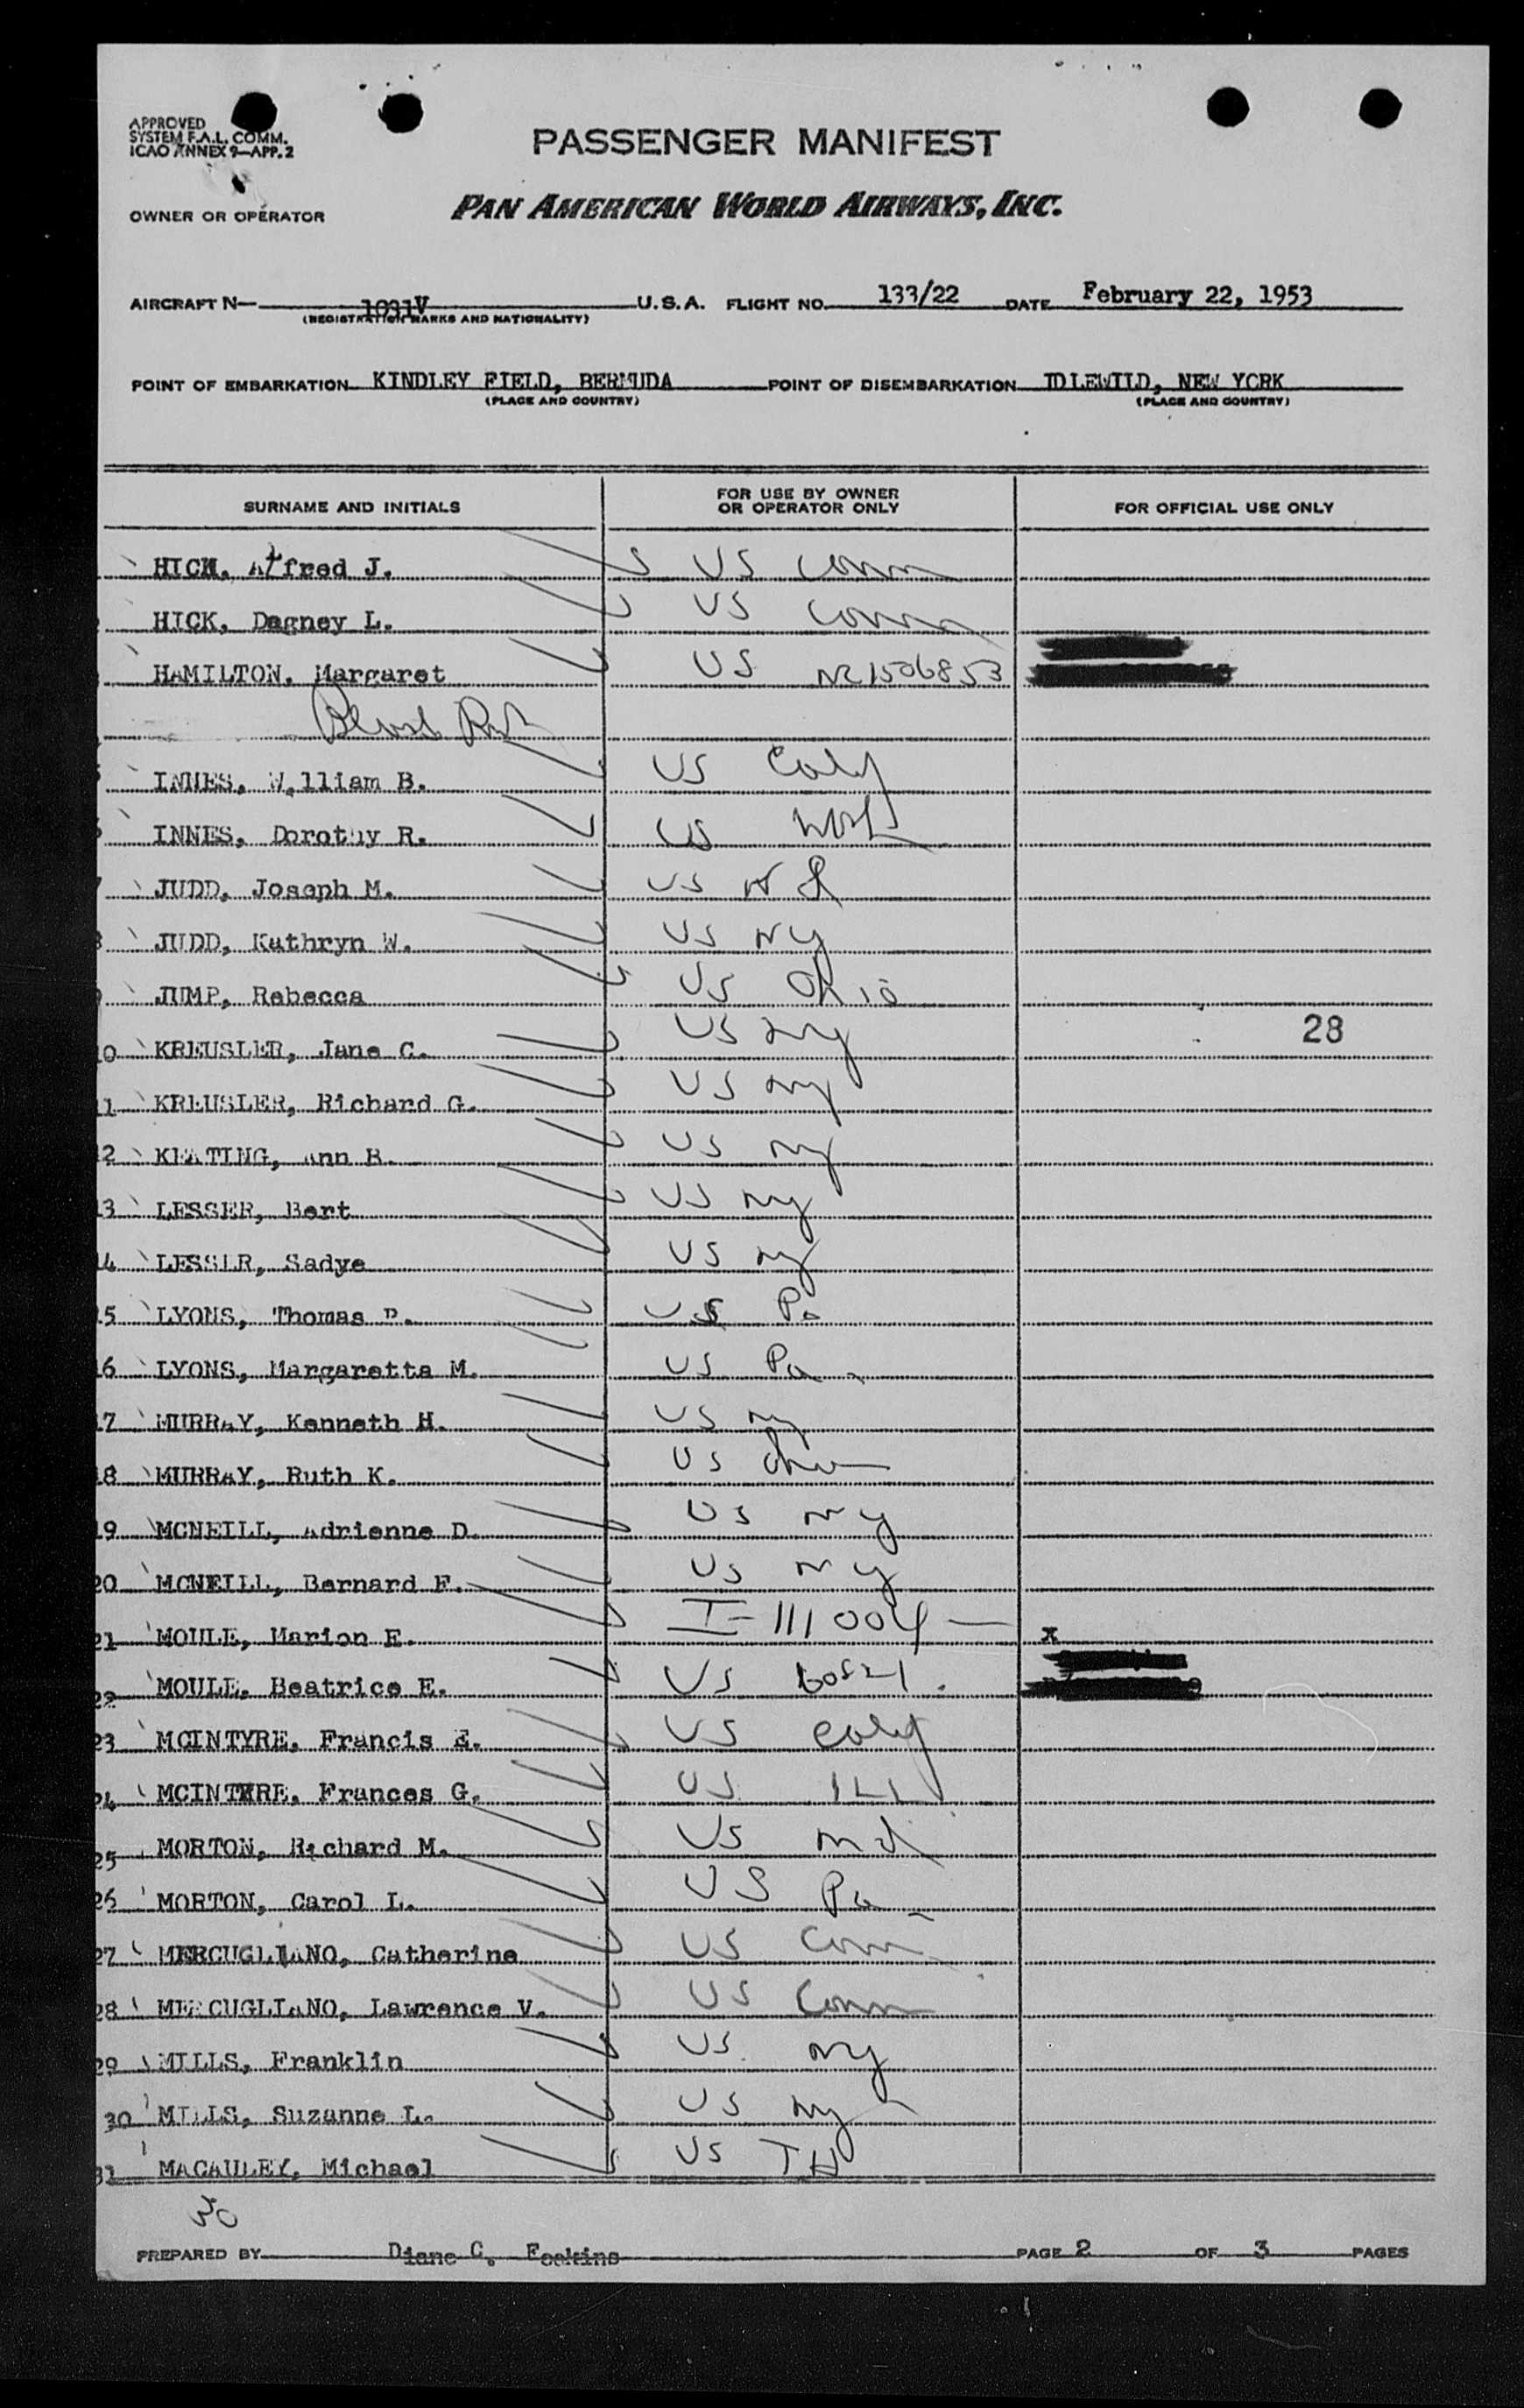 APPROVED
SYSTEM F.A.L. COMM.
ICAO ANNEX 9—APP. 2
PASSENGER MANIFEST
OWNER OR OPERATOR PAN AMERICAN WORLD AIRWAYS, INC.
AIRCRAFT N— 1031V U.S.A. FLIGHT NO. 133/22 DATE February 22, 1953
(REGISTRATION MARKS AND NATIONALITY)
POINT OF EMBARKATION KINDLEY FIELD, BERMUDA POINT OF DISEMBARKATION IDLEWILD, NEW YORK
(PLACE AND COUNTRY) (PLACE AND COUNTRY)
SURNAME AND INITIALS FOR USE BY OWNER OR OPERATOR ONLY FOR OFFICIAL USE ONLY
HICK, Alfred J. US Conn
HICK, Dagney L. US Conn
HAMILTON, Margaret US NR1506853
INNES, William B. US Calif
INNES, Dorothy R. US Wash
7 JUDD, Joseph M. US
8 JUDD, Kathryn W. US NY
9 JUMP, Rebecca US Ohio
10 KREUSLER, Jane C. US NY 28
11 KREUSLER, Richard G. US NY
12 KEATING, Ann B. US NY
13 LESSER, Bert US NY
14 LESSER, Sadye US NY
15 LYONS, Thomas P. US Pa
16 LYONS, Margaretta M. US Pa
17 MURRAY, Kenneth H. US NY
18 MURRAY, Ruth K. US
19 MCNEILL, Adrienne D. US NY
20 MCNEILL, Bernard F. US NY
21 MOULE, Marion E. I-111004 x
22 MOULE, Beatrice E. US 60521.
23 MCINTYRE, Francis E. US Calif
24 MCINTYRE, Frances G. US ILL
25 MORTON, Richard M. US Md
26 MORTON, Carol L. US Pa
27 MERCUGLIANO, Catherine US Conn
28 MERCUGLIANO, Lawrence V. US Conn
29 MILLS, Franklin US NY
30 MILLS, Suzanne L. US NY
31 MACAULEY, Michael US TH
30
PREPARED BY Diane C. Feskins PAGE 2 OF 3 PAGES